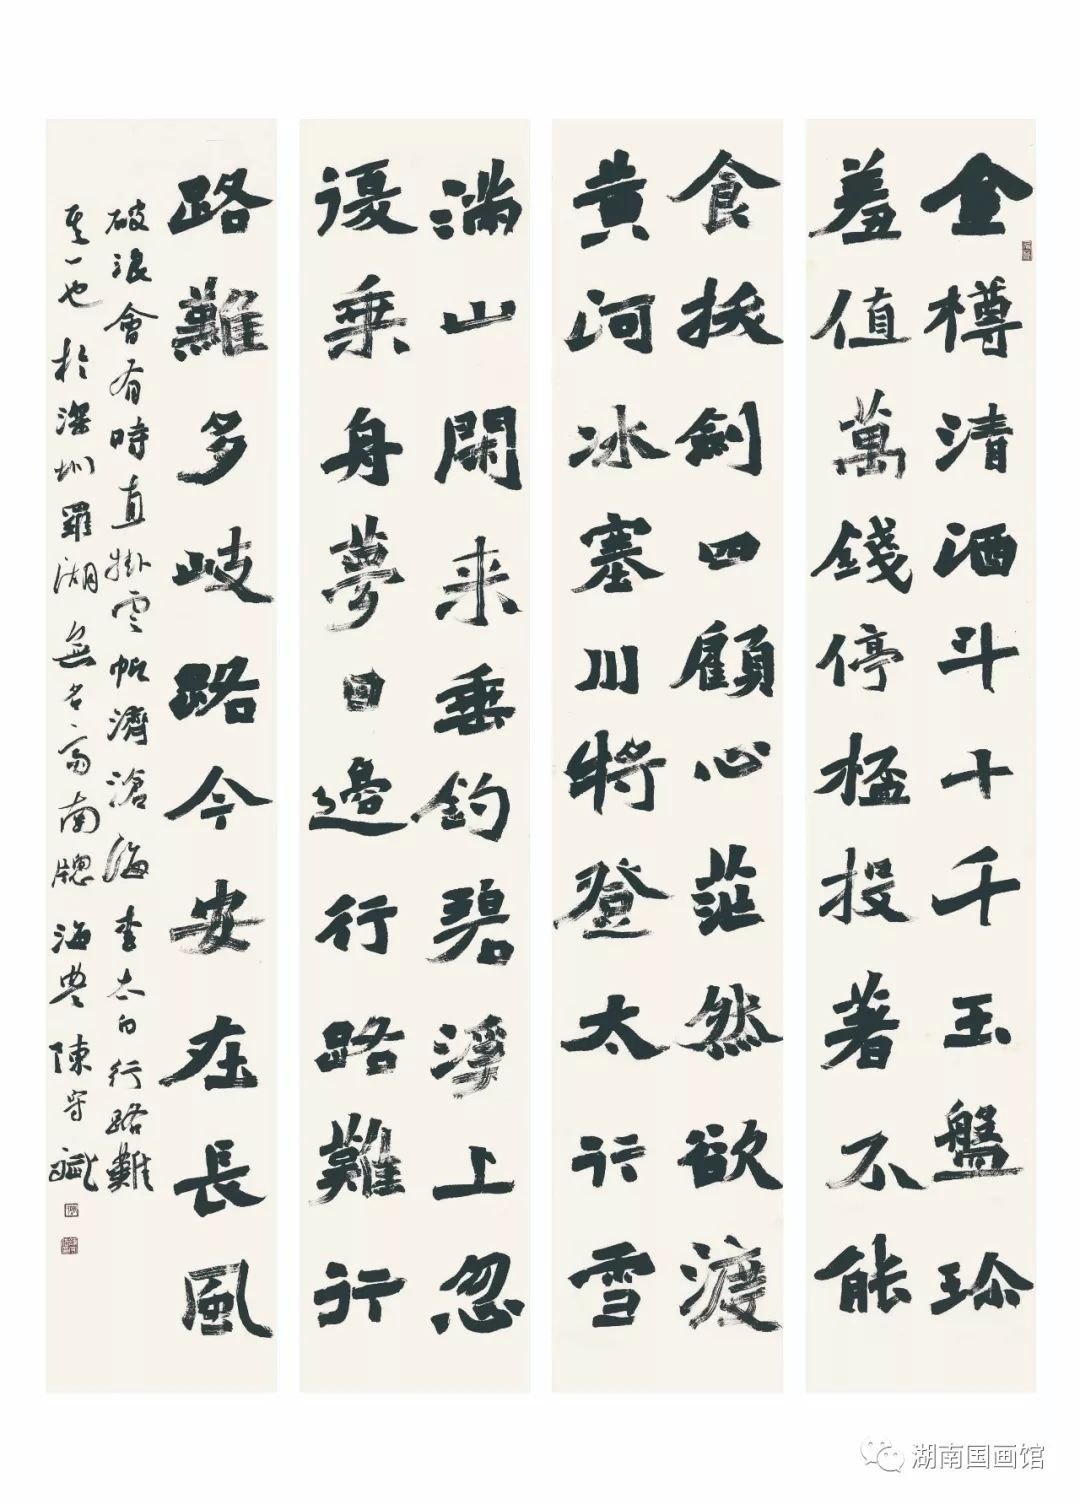 金樽清酒斗十千玉盤珍
羞值萬錢停杯投著不能
食拔劍四顧心茫然欲渡
黄河冰塞川將登太行雪
滿山閑来垂釣碧溪上忽
復乘舟夢日邊行路難行
路難多歧路今安在長風
破浪會有時直掛雲帆濟滄海 李太白行路難
其一也 於深圳羅湖無名斋南牕 海豐陳守斌
湖南国画馆